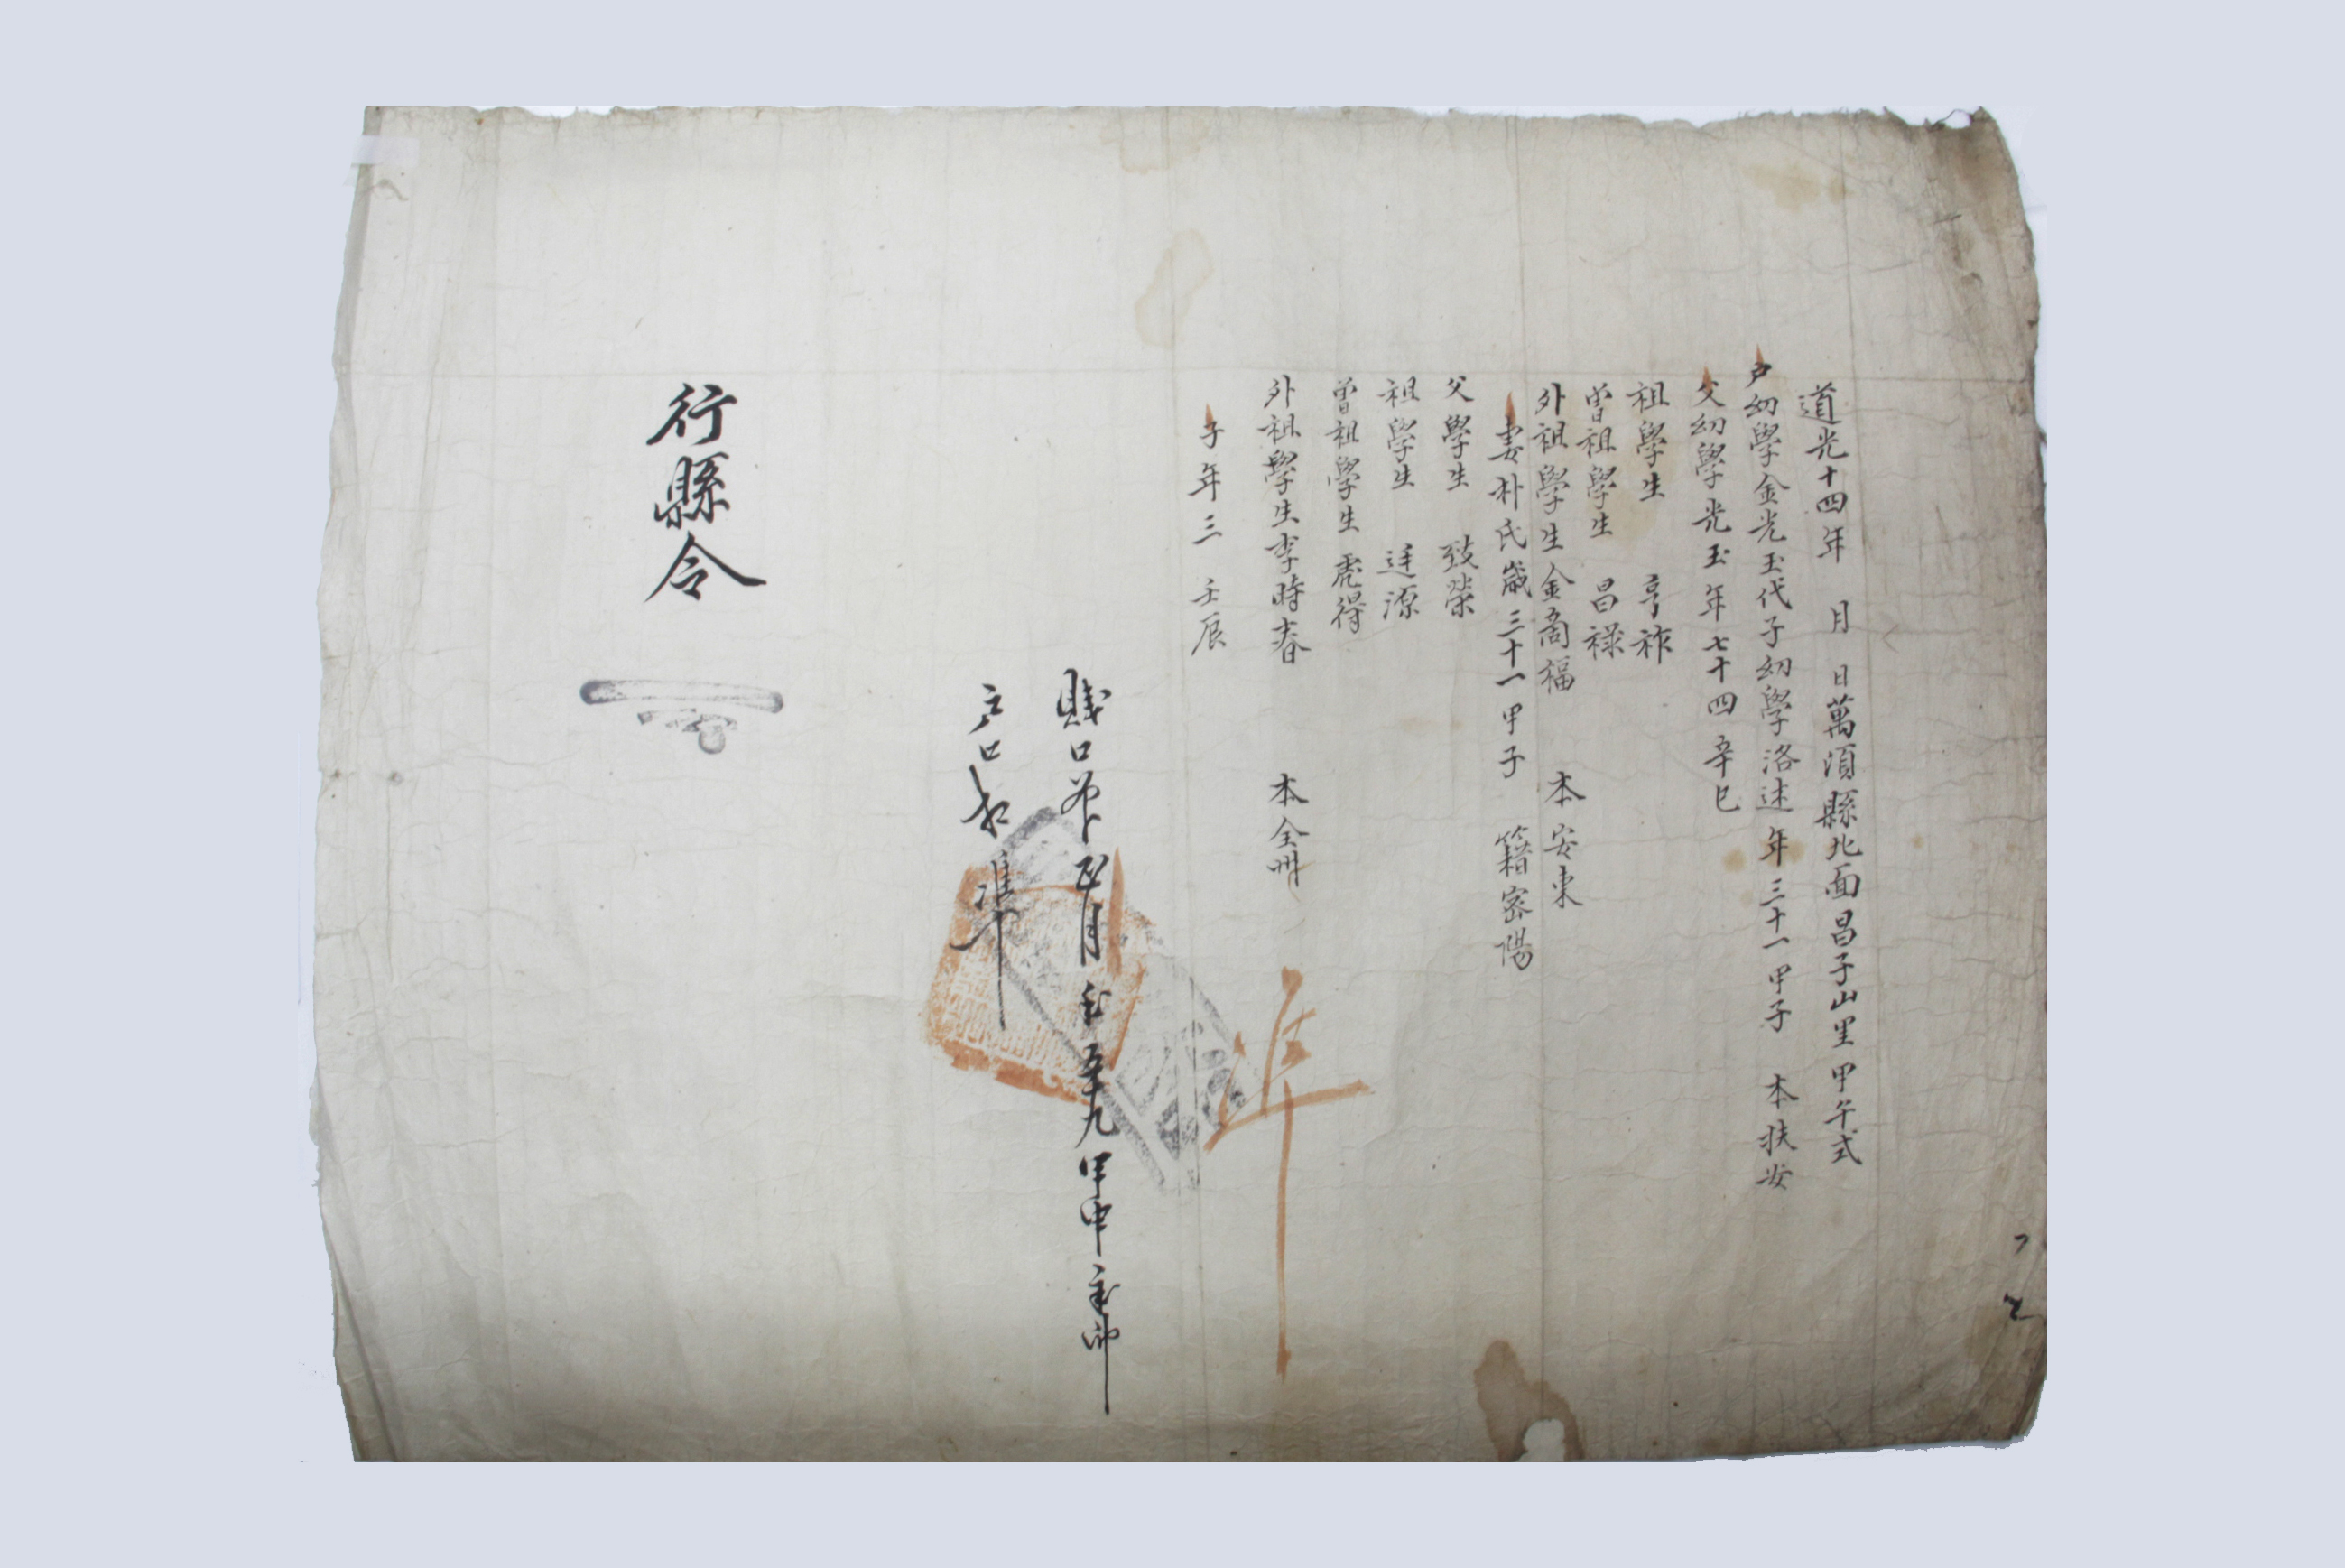 道光十四年 月 日萬頃縣北面昌子山里甲午式
戶幼學金光玉代子幼學洛述年三十一甲子 本扶安
父幼學光玉年七十四辛巳
祖學生 亨祚
曾祖學生 昌祿
外祖學生金商福 本安東
妻朴氏歲三十一甲子 籍密陽
父學生 致榮
祖學生 廷源
曾祖學生 虎得
外祖學生李時春 本全州
子年三 壬辰
準
賤口奴 月 年五十九 甲申
戶口相準
行縣令